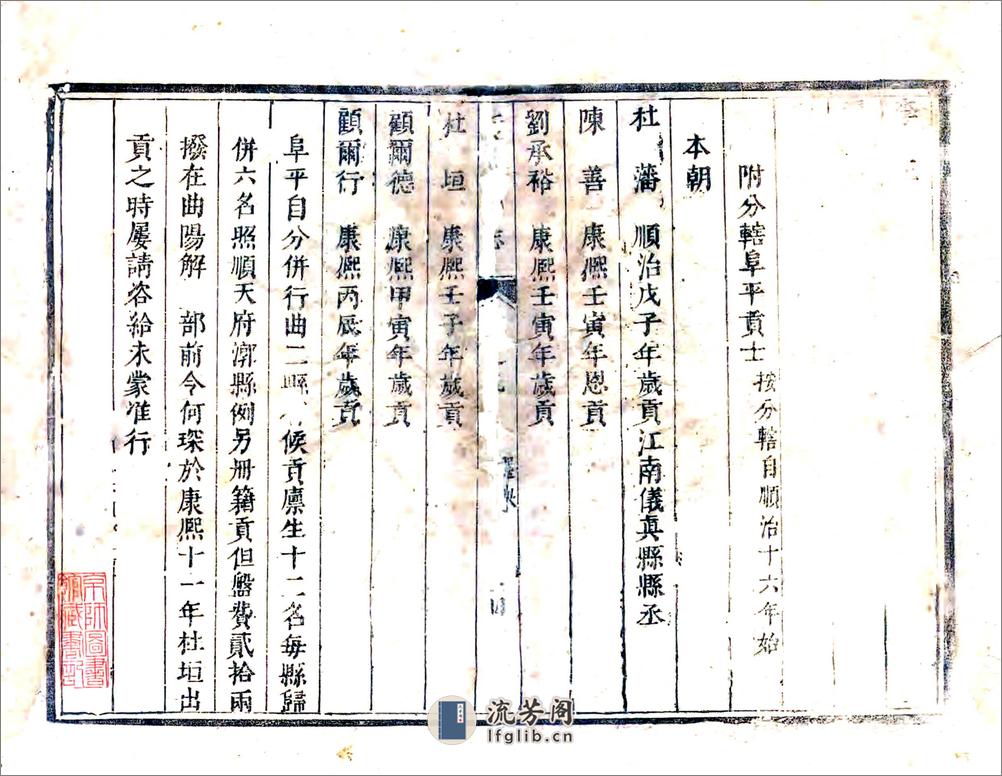 附分轄阜平貢士 按分轄自順治十六年始
本朝
杜 藩 順治戊子年歲貢江南儀真縣縣丞
陳 善 康熙壬寅年恩貢
劉承裕 康熙壬寅年歲貢
杜 垣 康熙壬子年歲貢
顧爾德 康熙甲寅年歲貢
顧爾行 康熙丙辰年歲貢
阜平自分併行曲二縣 候貢廩生十二名每縣歸
併六名照順天府漷縣例另冊籍貢但盤費貳拾兩
撥在曲陽解 部前令何琛於康熙十一年杜垣出
貢之時屢請咨給未蒙准行
京師圖書
館藏書記
流芳阁
lfglib.cn